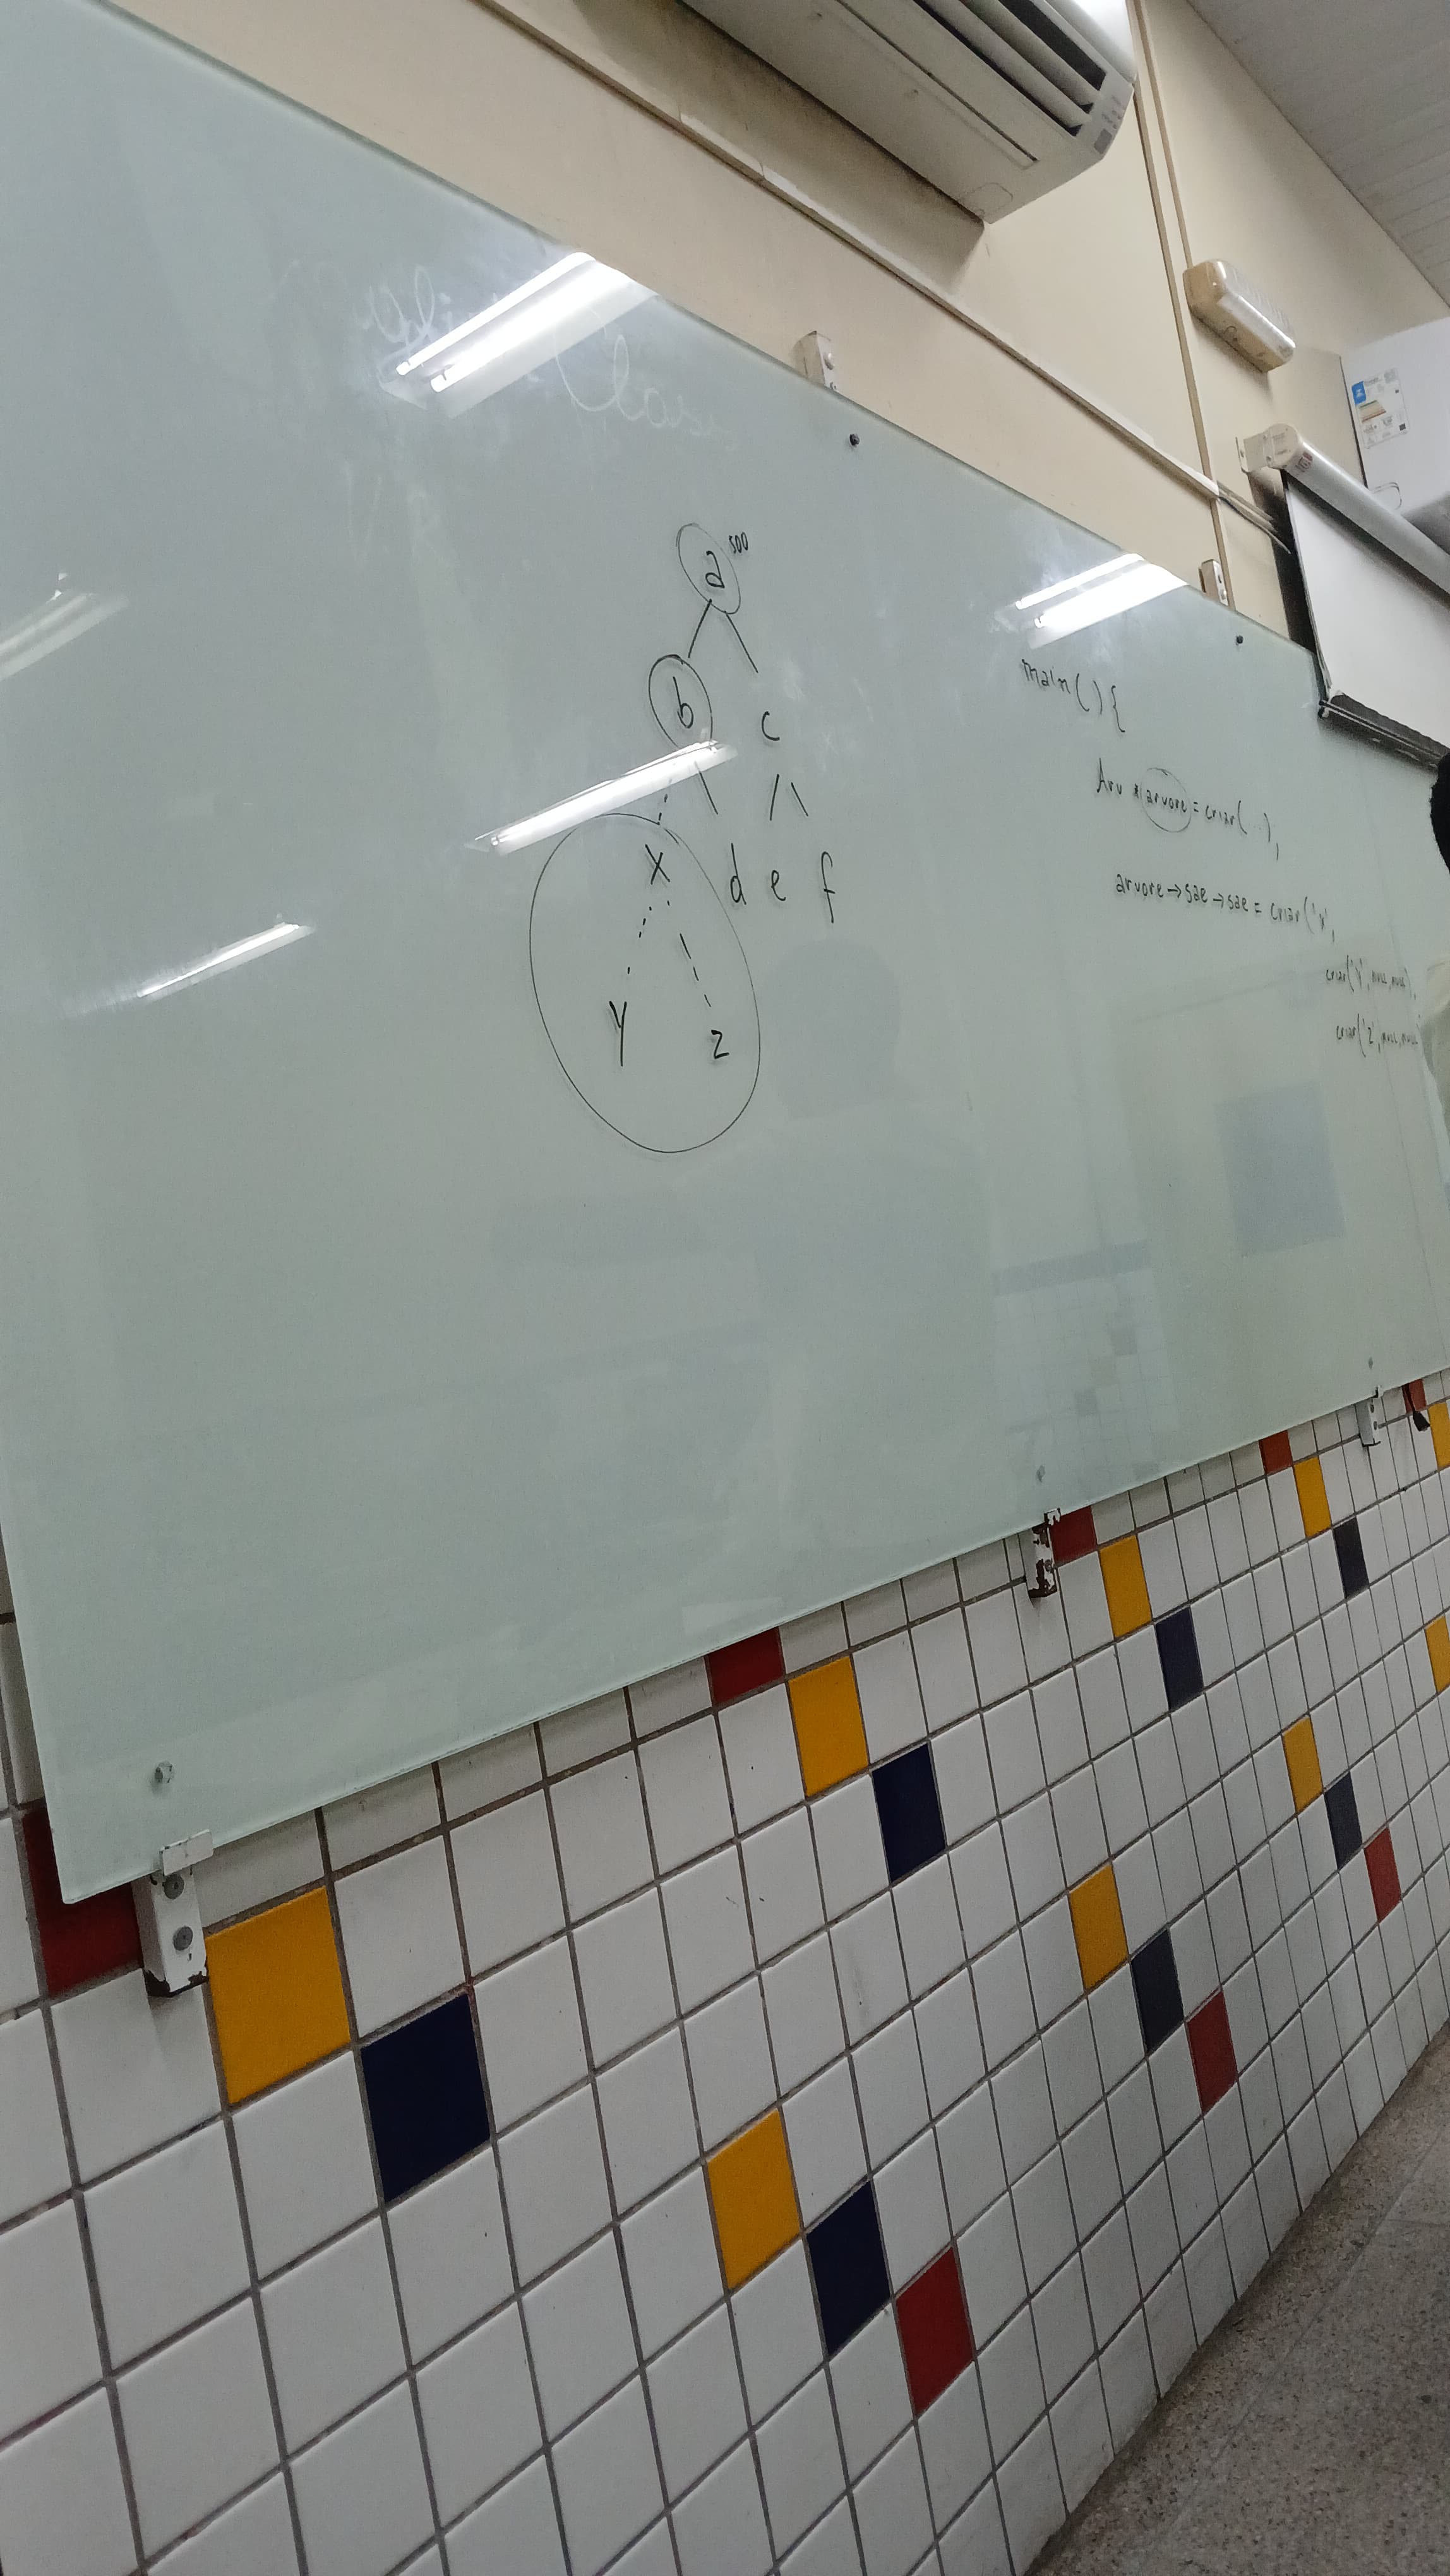 a 500
b c
x d e f
y z
main( ) {
Arv *arvore = criar( . . ),
arvore → sae → sae = criar('x',
criar('y', NULL, NULL),
criar('z', NULL, NULL